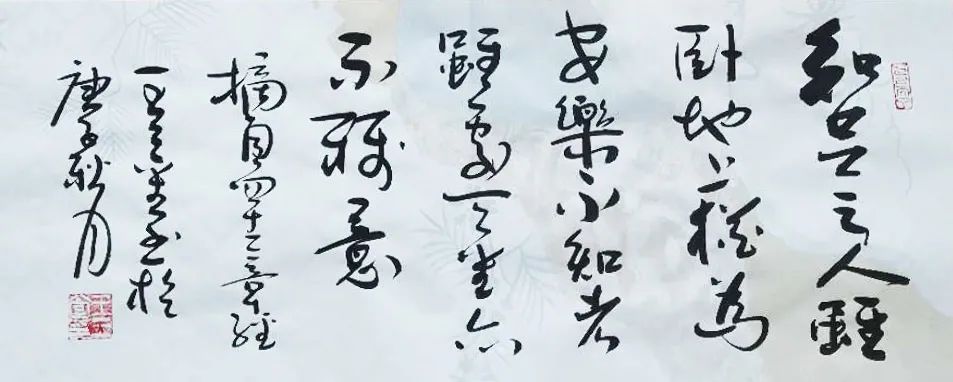 知足之人雖
卧地上猶為
安樂不知者
雖處天堂亦
不稱意
摘自四十二章經
書於
庚子秋月